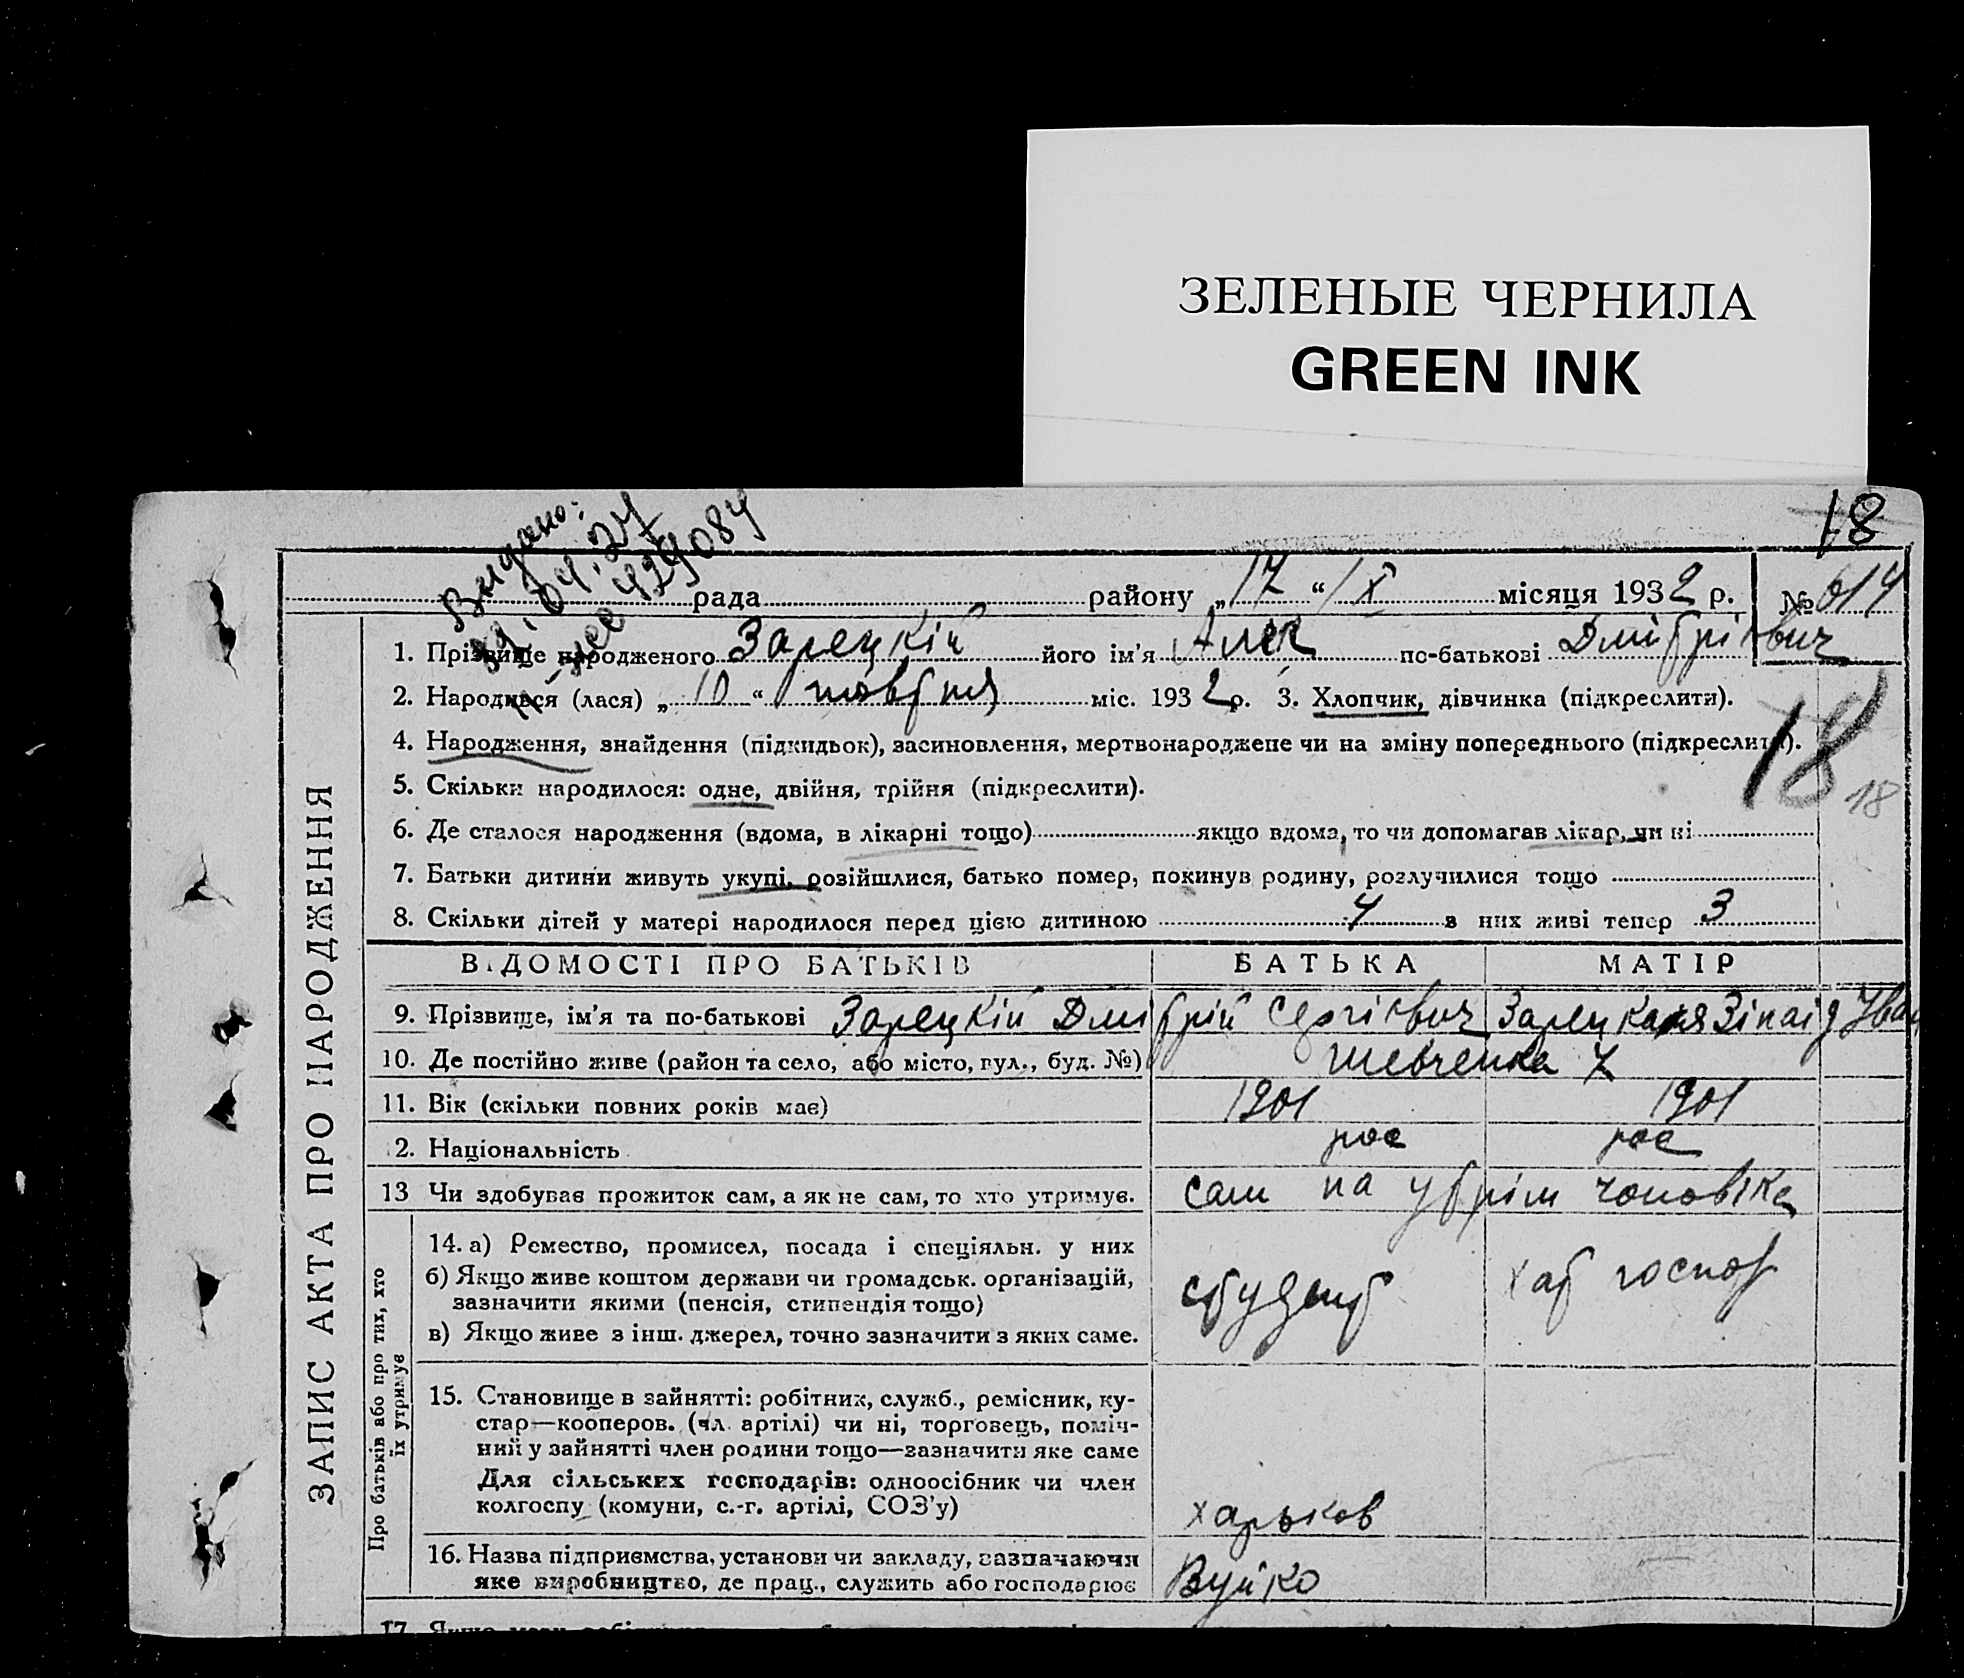 ЗЕЛЕНЫЕ ЧЕРНИЛА
GREEN INK
18
Видано:
429084
рада району „17“ /X місяця 1932 р. № 614
1. Прізвище народженого Зарецкій його ім'я Алік по-батькові Дмітрієвич
2. Народився (лася) „10“ жовтня міс. 1932 р. 3. Хлопчик, дівчинка (підкреслити).
4. Народження, знайдення (підкидьок), засиновлення, мертвонароджене чи на зміну попереднього (підкреслити).
18
18
5. Скільки народилося: одне, двійня, трійня (підкреслити).
6. Де сталося народження (вдома, в лікарні тощо) якщо вдома, то чи допомагав лікар, чи ні
7. Батьки дитини живуть укупі, розійшлися, батько помер, покинув родину, розлучилися тощо
8. Скільки дітей у матері народилося перед цією дитиною 4 з них живі тепер 3
ЗАПИС АКТА ПРО НАРОДЖЕННЯ
ВІДОМОСТІ ПРО БАТЬКІВ БАТЬКА МАТІР
9. Прізвище, ім'я та по-батькові Зарецкій Дмітрій Сергієвич Зарецкая Зінаід Іван
10. Де постійно живе (район та село, або місто, вул., буд. №) Шевченка 7
11. Вік (скільки повних років має) 1901 1901
12. Національність рос рос
13 Чи здобував прожиток сам, а як не сам, то хто утримує. сам на утрім чоловіка
Про батьків або про тих, хто їх утримує
14. а) Ремество, промисел, посада і спеціяльн. у них
б) Якщо живе коштом держави чи громадськ. організацій,
зазначити якими (пенсія, стипендія тощо)
студент хат господ
в) Якщо живе з інш. джерел, точно зазначити з яких саме.
15. Становище в зайнятті: робітник, служб., ремісник, ку-
стар—кооперов. (чл. артілі) чи ні, торговець, поміч-
ний у зайнятті член родини тощо—зазначити яке саме
Для сільських господарів: одноосібник чи член
колгоспу (комуни, с.-г. артілі, СОЗ'у)
харьков
16. Назва підприємства, установи чи закладу, зазначаючи
яке виробництво, де прац., служить або господарює
17.